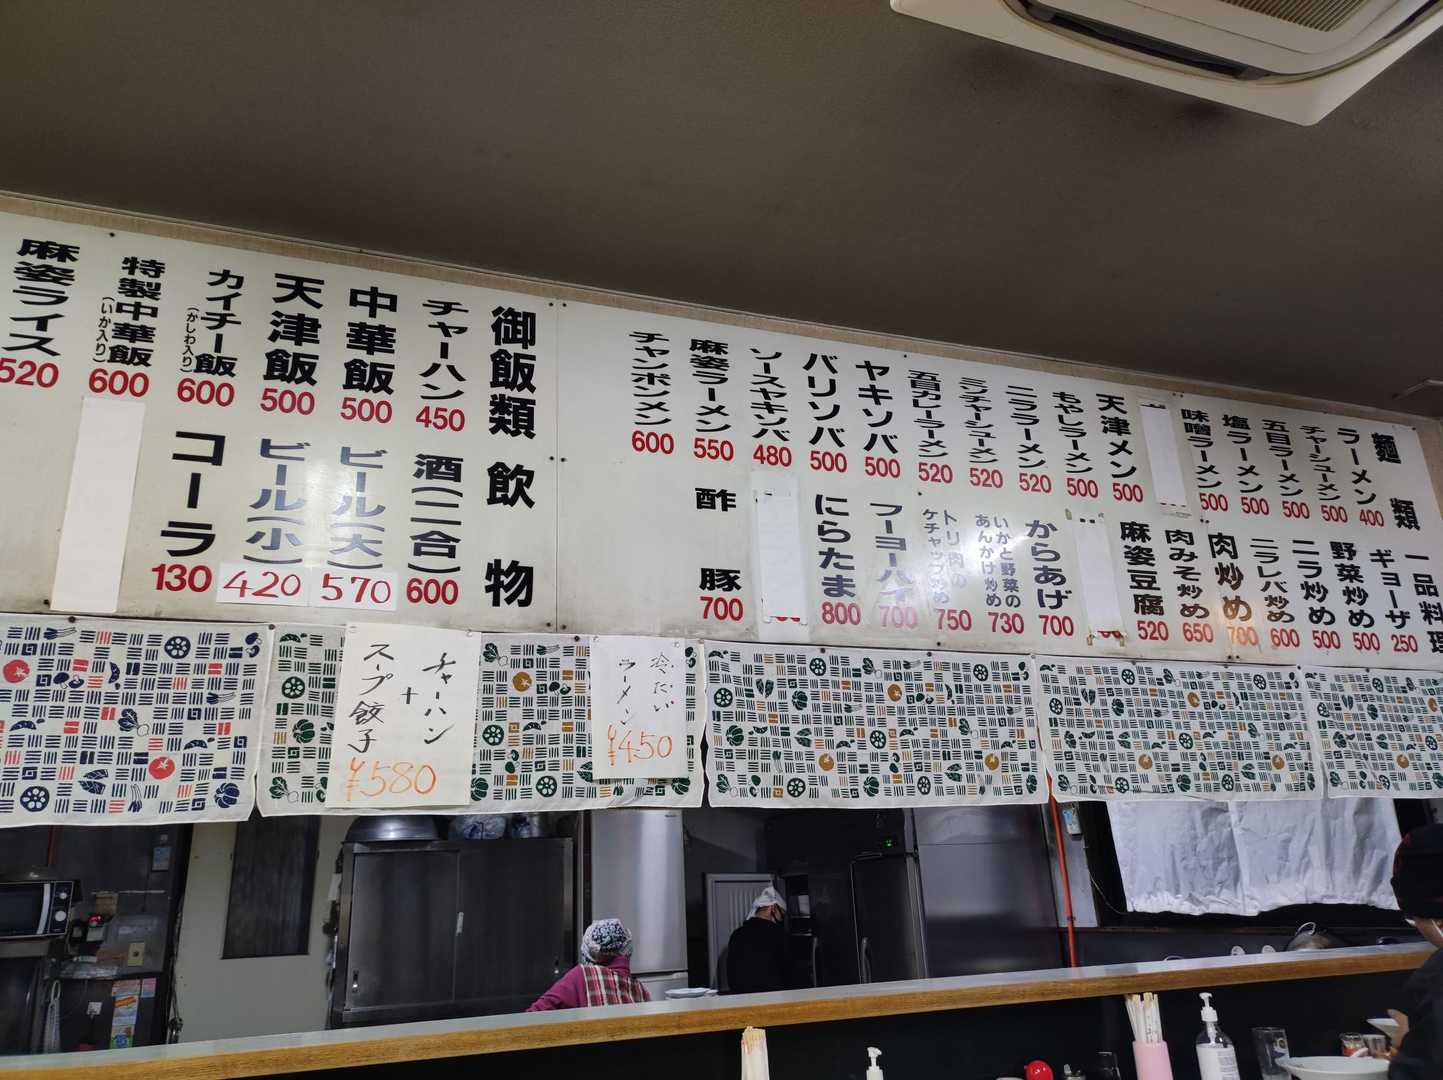 麺類
ラーメン 400
チャーシューメン 500
五目ラーメン 500
塩ラーメン 500
味噌ラーメン 500
天津メン 500
もやしラーメン 500
ニララーメン 520
ミンチャーシューメン 520
五目カレーラーメン 520
ヤキソバ 500
バリソバ 500
ソースヤキソバ 480
麻姿ラーメン 550
チャンポンメン 600
一品料理
ギョーザ 250
野菜炒め 500
ニラ炒め 500
ニラレバ炒め 600
肉炒め 700
肉みそ炒め 650
麻姿豆腐 520
からあげ 700
いかと野菜の
あんかけ炒め 730
トリ肉の
ケチャップ炒め 750
フーヨーハイ 700
にらたま 800
酢豚 700
御飯類
チャーハン 450
中華飯 500
天津飯 500
カイチー飯
(かしわ入り) 600
特製中華飯
(いか入り) 600
麻姿ライス 520
飲物
酒(二合) 600
ビール(大) 570
ビール(小) 420
コーラ 130
チャーハン
+
スープ餃子
¥580
ラーメン
¥450